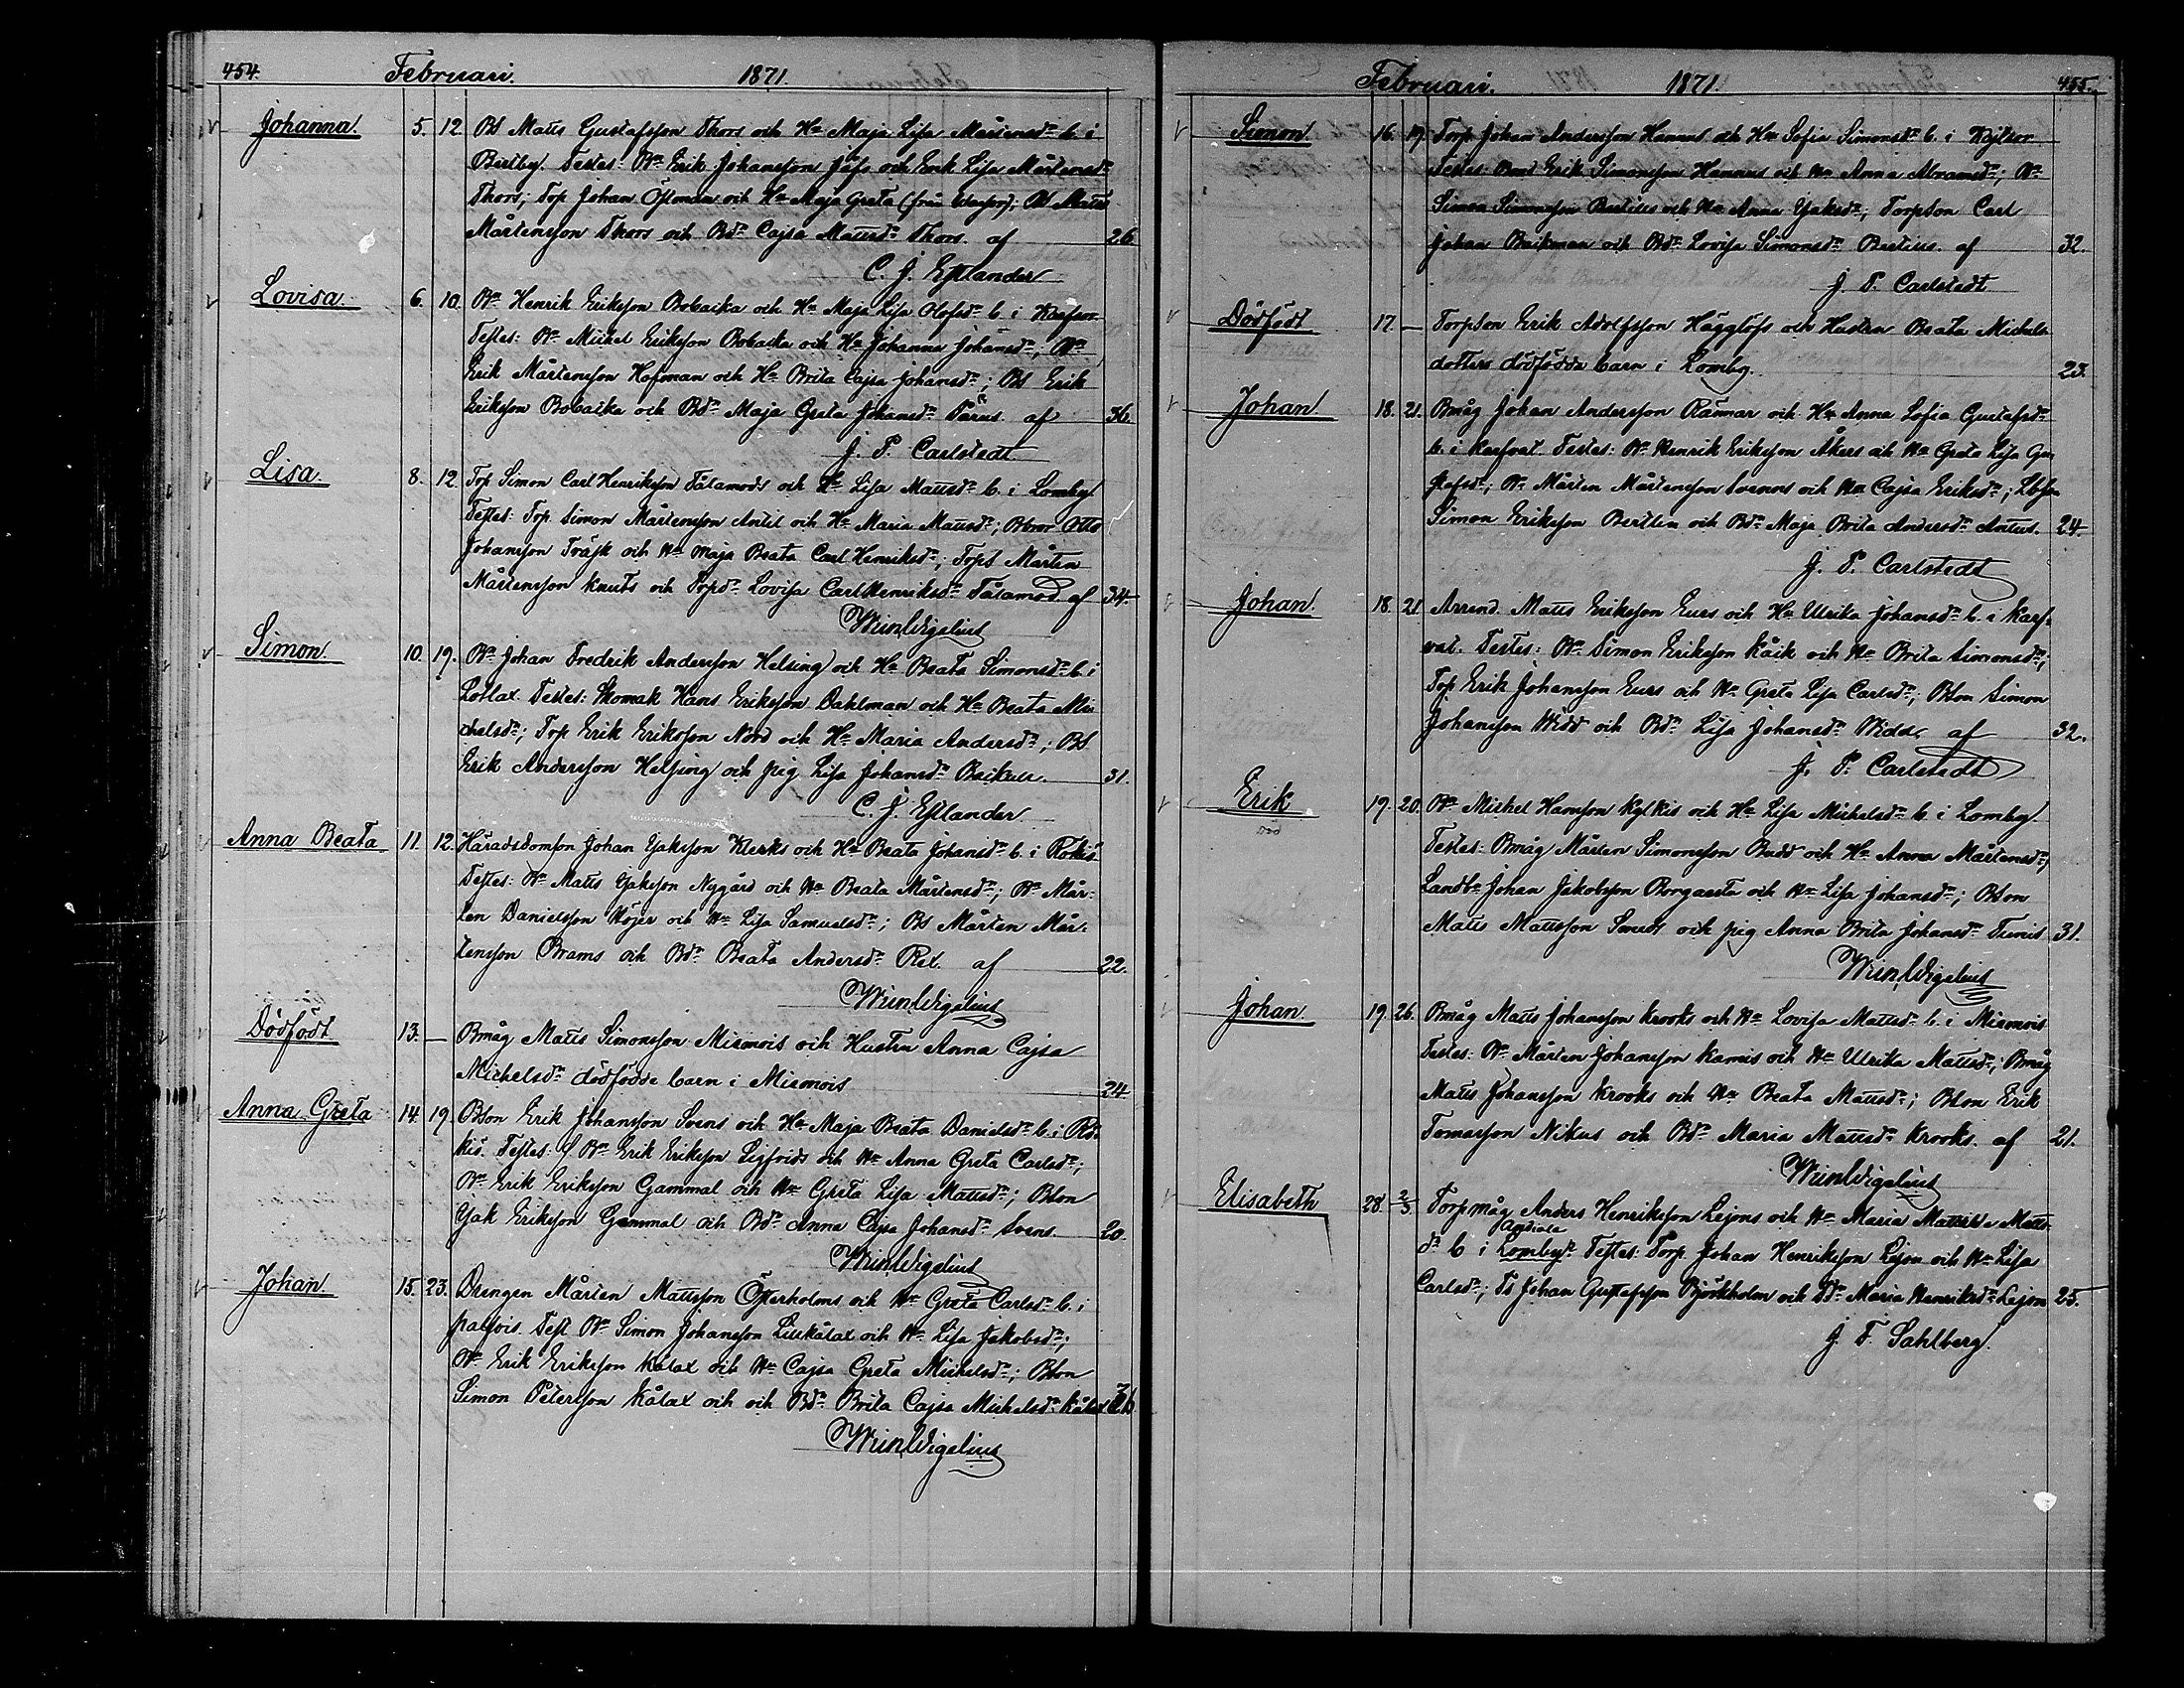 454. Februari. 1871.
Johanna. 5. 12. Bd Matts Gustafsson Thors och Hu Maja Lisa Mårtensdr b. i
Bertby. Testes: Bn Erik Johansson Jåfs och Enk Lisa Mårtensdr
Thors; Torp Johan Östman och Hu Maja Greta (från ); Bd Matts
Mårtensson Thors och Bdr Cajsa Mattsdr Thors. af 26
C. J. Estlander
Lovisa. 6. 10. Bn Henrik Eriksson Bobacka och Hu Maja Lisa Olofsdr b. i
Testes: Bn Mickel Eriksson Bobacka och Hu Johanna Johansdr; Bn
Erik Mårtensson Hofman och Hu Brita Cajsa Johansdr; Bd Erik
Eriksson Bobacka och Bdr Maja Greta Johansdr Pärus. af 36.
J. P. Carlstedt
Lisa. 8. 12. Torp Simon Carl Henriksson Tålamods och Hu Lisa Mattsdr b. i Lomby.
Testes: Torp. Simon Mårtensson Antil och Hu Maria Mattsdr; Otto
Johansson Träsk och Hu Maja Beata Carl Henriksdr; Torps Mårten
Mårtensson Knuts och Torpdr Lovisa Carl Henriksdr Tålamod af 34.
Wigelius
Simon. 10. 19. Bn Johan Fredrik Andersson Helsing och Hu Beata Simonsdr b. i
Lotlax. Testes: Skomak Hans Eriksson Dahlman och Hu Beata Mi
chelsdr; Torp Erik Eriksson Nord och Hu Maria Andersdr; Bd
Erik Andersson Helsing och pig Lisa Johansdr 31.
C. J. Estlander
Anna Beata 11. 12. Häradsdomson Johan Isaksson Klerks och Hu Beata Johansdr b. i Rökiö
Testes: Bn Matts Isaksson Nygård och Hu Beata Mårtensdr; Bn Mår-
ten Danielsson Höjer och Hu Lisa Samuelsdr; Bd Mårten Mår-
tensson Brams och Bdr Beata Andersdr Rex. af 22.
Wigelius
Dödfödt 13. — Bmåg Matts Simonsson Miemois och Hustrn Anna Cajsa
Michelsdr dödfödde barn i Miemois 24
Anna Greta 14. 19. Bson Erik Johansson Svens och Hu Maja Beata Danielsdr b. i Rö-
kiö. Testes: Bn Erik Eriksson Sigfrids och Hu Anna Greta Carlsdr;
Bn Erik Eriksson Gammal och Hu Greta Lisa Mattsdr; Bson
Isak Eriksson Gammal och Bdr Anna Cajsa Johansdr Svens. 20
Wigelius
Johan. 15. 23. Drengen Mårten Mattsson Österholms och Hu Greta Carlsdr b. i
Palvois. Test Bn Simon Johansson Lillkålax och Hu Lisa Jakobsdr;
Bn Erik Eriksson Kålax och Hu Cajsa Greta Michelsdr; Bson
Simon Petersson Kålax och och Bdr Brita Cajsa Michelsdr Kålax
Wigelius
Februari. 1871. 455.
Simon. 16. 19. Torp Johan Andersson Hannus och Hu Sofia Simonsdr b. i
Testes: Bond Erik Simonsson Hannus och Hu Anna Abramsdr; Bn
Simon Simonsson Bertills och Hu Anna Isaksdr; Torpson Carl
Johan Backman och Bdr Lovisa Simonsdr Bertills. af 32.
J. P. Carlstedt
Dödfödt 17. — Torpson Erik Adolfsson Hägglöfs och Hustrn Beata Michels-
dotters dödfödda barn i Lomby. 23.
Johan. 18. 21. Bmåg Johan Andersson Rännar och Hu Anna Sofia Gustafsdr
b. i Karfvat. Testes: Bn Henrik Eriksson Åkers och Hu Greta Lisa Gu-
stafsdr; Bn Mårten Mårtensson Svenns och Hu Cajsa Eriksdr; Lbson
Simon Eriksson Bertlin och Bdr Maja Brita Andersdr Antus. 24.
J. P. Carlstedt
Johan. 18. 21 Arrend. Matts Eriksson Eurs och Hu Ulrika Johansdr b. i Karf-
vat. Testes: Bn Simon Eriksson Kåik och Hu Brita Simonsdr;
Torp Erik Johansson Eurs och Hu Greta Lisa Carlsdr; Bson Simon
Johansson Widd och Bdr Lisa Johansdr Widd. af 32.
J. P. Carlstedt
Erik 19. 20. Bn Michel Hansson Kylkis och Hu Lisa Michelsdr b. i Lomby.
död
Testes: Bmåg Mårten Simonsson Budd och Hu Anna Mårtensdr;
Landb. Johan Jakobsson Borgaasta och Hu Lisa Johansdr; Bson
Matts Mattsson Smeds och pig Anna Brita Johansdr Tunis 31.
Wigelius
Johan. 19. 26. Bmåg Matts Johansson Krooks och Hu Lovisa Mattsdr b. i Miemois
Testes: Bn Mårten Johansson Kamis och Hu Ulrika Mattsdr; Bmåg
Matts Johansson Krooks och Hu Beata Mattsdr; Bson Erik
Tomasson Nikus och Bdr Maria Mattsdr Krooks. af 21.
Wigelius
Elisabeth 28. 2/3. Torpmåg Anders Henriksson Lejons och Hu Maria Mathilda Matts-
Andiala
dr b i Lomby. Testes: Torp. Johan Henriksson Lejon och Hu Lisa
Carlsdr; Ts Johan Gustafsson Björkholm och Tdr Maria Henriksdr Lejon 25.
J. F. Sahlberg.